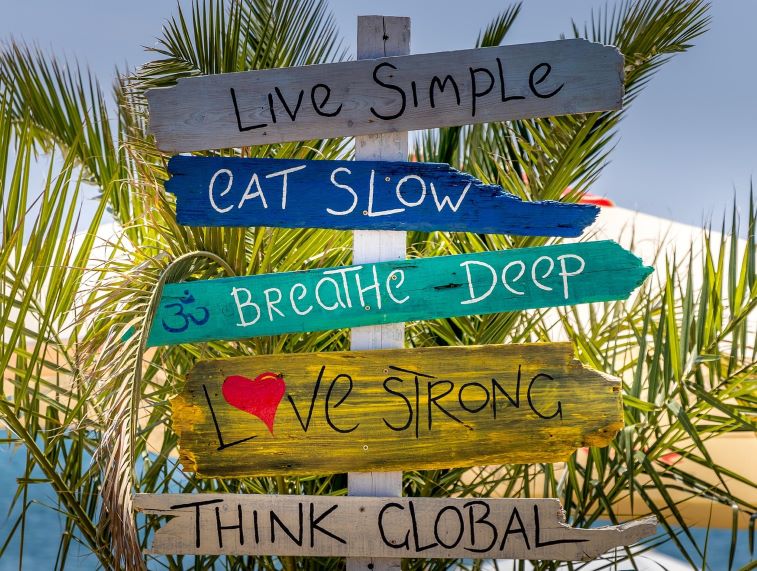 LIVE SIMPLE
EAT SLOW
ॐ BREATHE DEEP
L❤VE STRONG
THINK GLOBAL